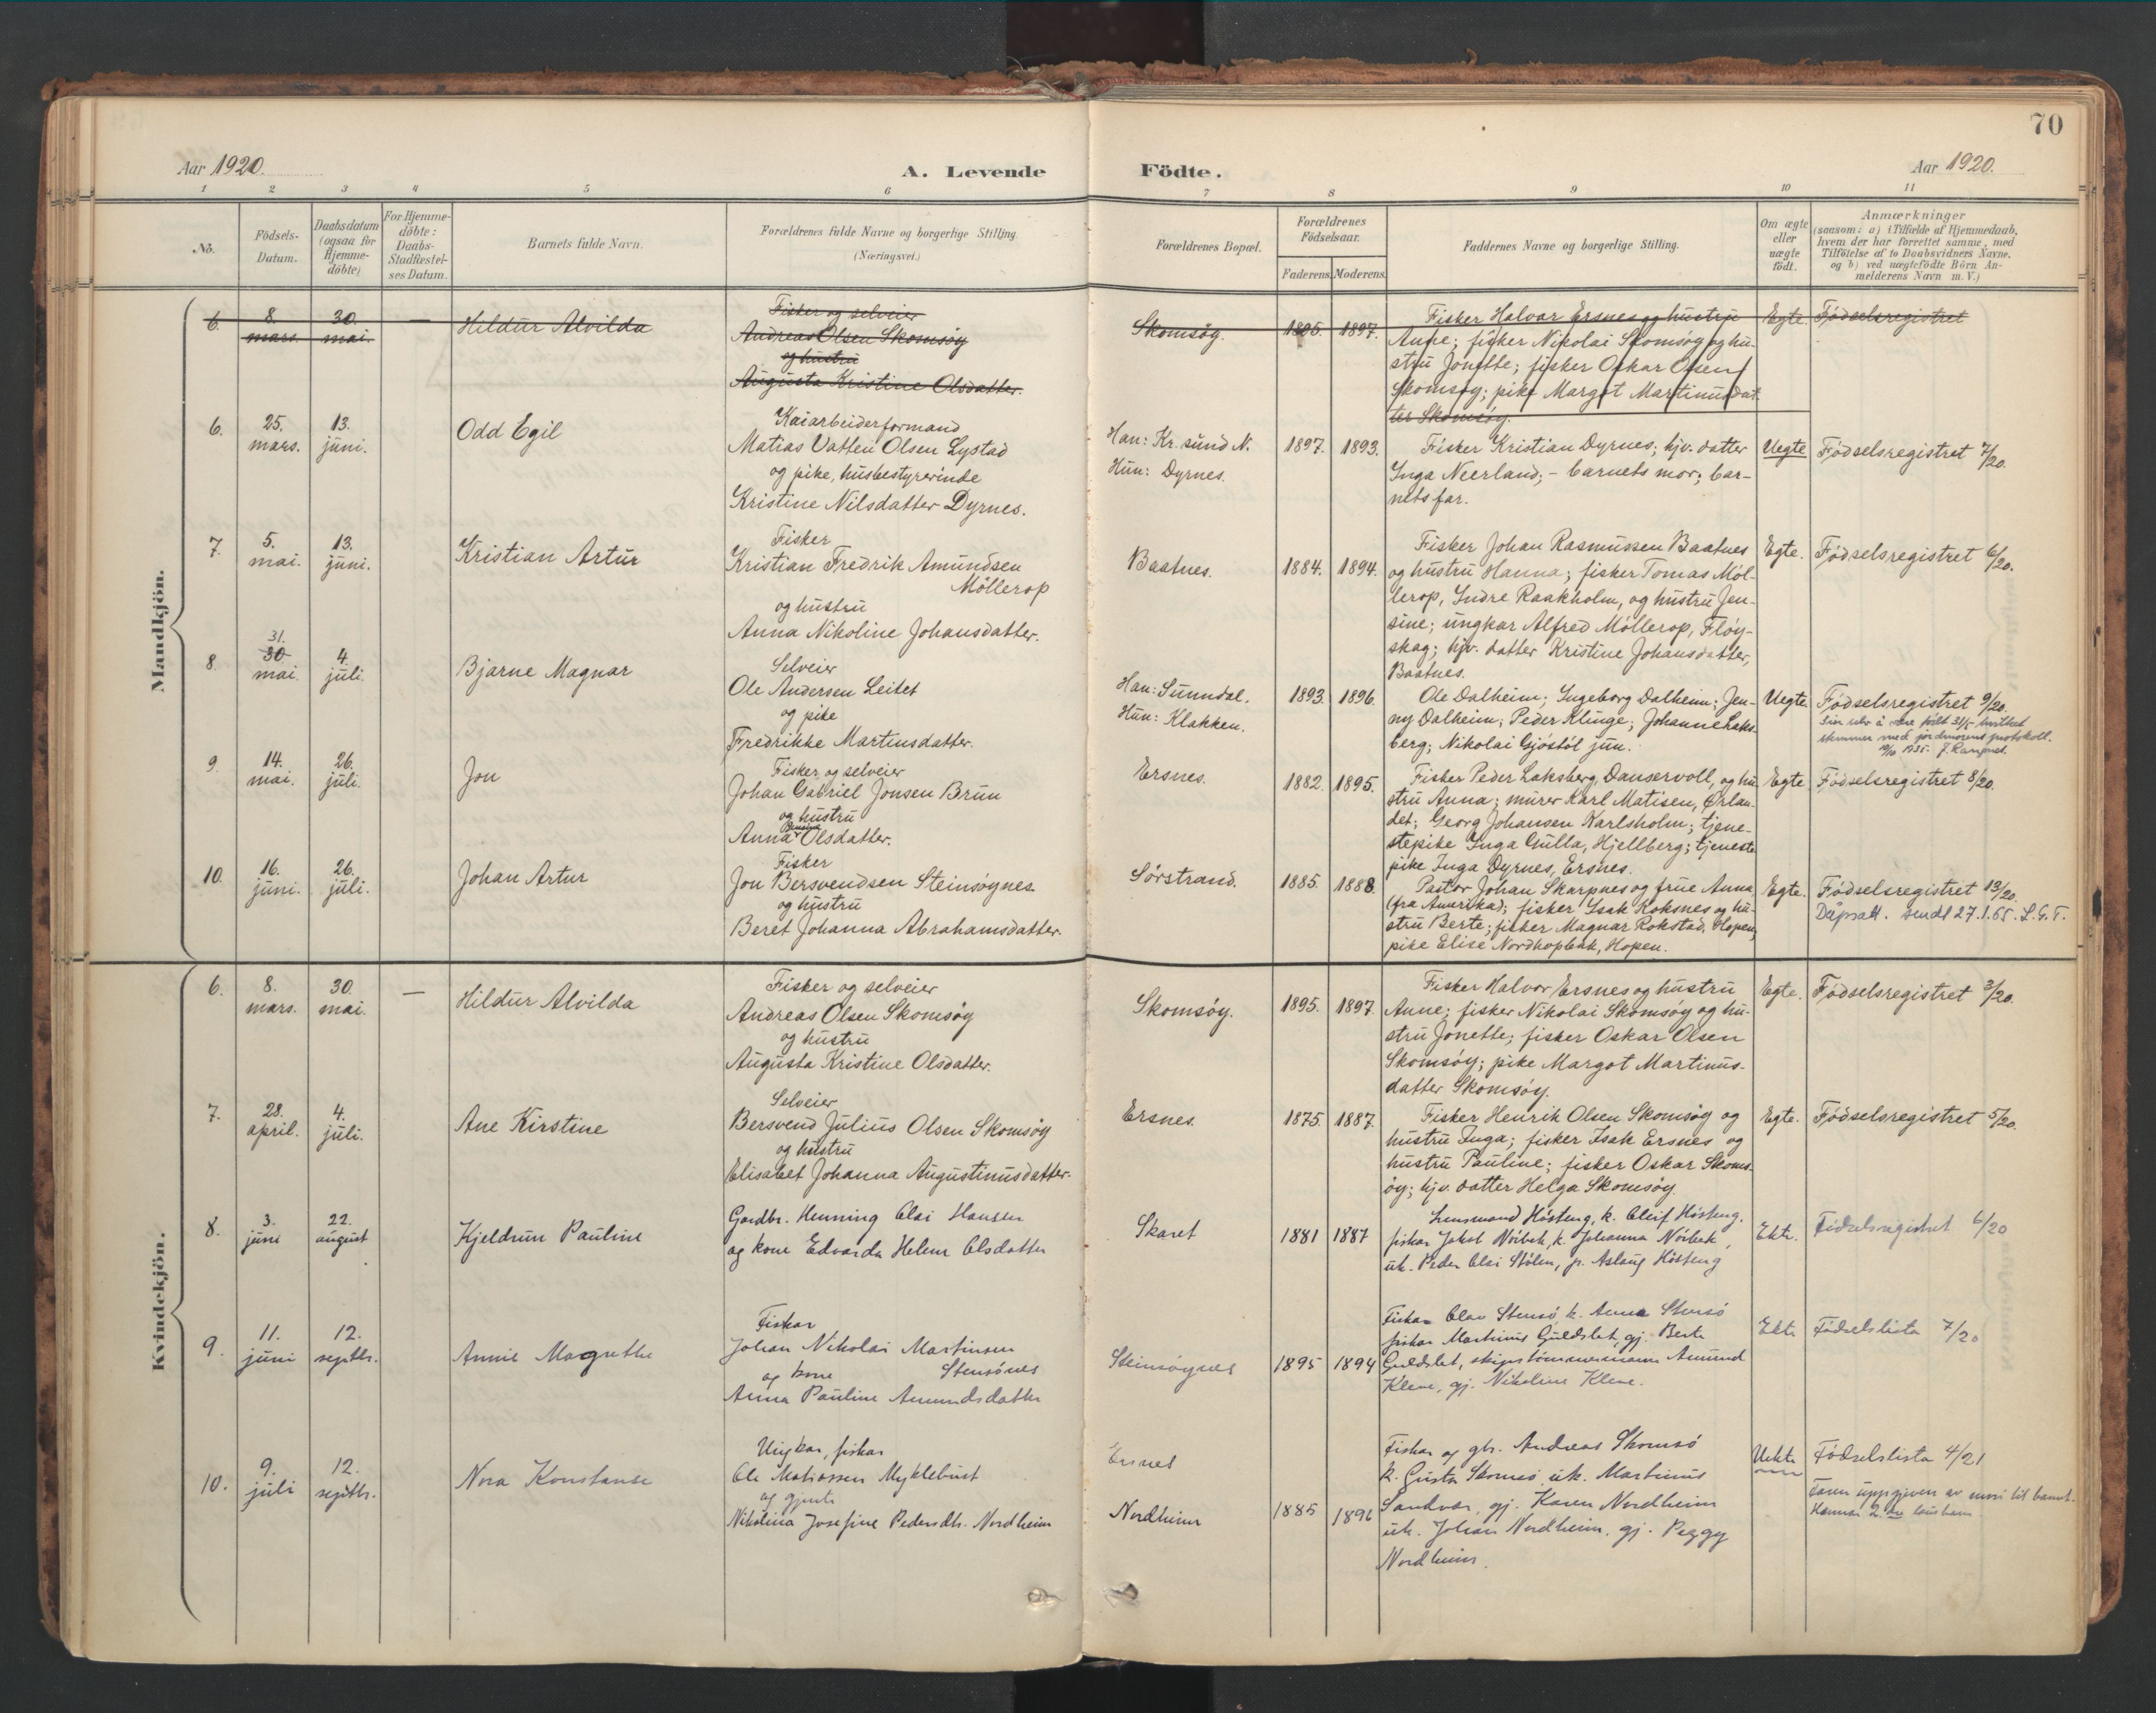 70
Aar 1920.
A. Levende
Födte.
Aar 1920.
1 2 3 4 5 6 7 8 9 10 11
No.
Födsels-
Datum.
Daabsdatum
(ogsaa for
Hjemme-
döbte)
For Hjemme-
döbte:
Daabs-
Stadfæstel-
ses Datum.
Barnets fulde Navn.
Forældrenes fulde Navne og borgerlige Stilling.
(Næringsvei.)
Forældrenes Bopæl.
Forældrenes
Födselsaar.
Faderens. Moderens.
Faddernes Navne og borgerlige Stilling.
Om ægte
eller
uægte
födt.
Anmærkninger
(saasom: a) i Tilfælde af Hjemmedaab,
hvem der har forrettet samme, med
Tilföielse af to Daabsvidners Navne,
og b) ved uægtefödte Börn An-
melderens Navn m. V.)
Mandkjön.
6.
8.
mars.
30.
mai.
—
Hildur Alvilda
Fisker og selveier
Andreas Olsen Skomsöy
og hustru
Augusta Kristine Olsdatter.
Skomsöy.
1895. 1897.
Fisker Halvor Ersnes og hustru
Anne; fisker Nikolai Skomsöy og hu-
stru Jonette; fisker Oskar Olsen
Skomsöy; pike Margot Martinusdat-
ter Skomsöy.
Egte.
Födselsregistret
6.
25.
mars.
13.
juni.
Odd Egil
Kaiarbeiderformand
Matias Vatten Olsen Lystad
og pike, husbestyrerinde
Kristine Nilsdatter Dyrnes.
Han: Kr.sund N.
Hun: Dyrnes.
1897. 1893.
Fisker Kristian Dyrnes; hjv. datter
Inga Neerland; - barnets mor; bar-
nets far.
Uegte
Födselsregistret 7/20.
7.
5.
mai.
13.
juni.
Kristian Artur
Fisker
Kristian Fredrik Amundsen
Möllerop
og hustru
Anna Nikoline Johansdatter.
Baatnes.
1884. 1894.
Fisker Johan Rasmussen Baatnes
og hustru Hanna; fisker Tomas Möl-
lerop, Indre Raakholm, og hustru Jen-
sine; ungkar Alfred Möllerop, Flöy-
skag; hjv. datter Kristine Johansdatter,
Baatnes.
Egte.
Födselsregistret 6/20.
8.
31.
30
mai.
4.
juli.
Bjarne Magnar
Selveier
Ole Andersen Leitet
og pike
Fredrikke Martinsdatter.
Han: Sunndal.
Hun: Klakken.
1893. 1896.
Ole Dalheim; Ingeborg Dalheim; Jen-
ny Dalheim; Peder Klinge; Johanne Laks-
berg; Nikolai Gjöstöl jun.
Uegte
Födselsregistret 9/20.
født 31/5 hvilket
stemmer med jordmorens protokoll.
9.
14.
mai.
26.
juli.
Jon
Fisker og selveier
Johan Gabriel Jonsen Brun
og hustru
Anna Olsdatter.
Ersnes.
1882. 1895.
Fisker Peder Laksberg, Danservoll, og hu-
stru Anna; murer Karl Matisen, Ørlan-
det; Georg Johansen Karlsholm; tjene-
stepike Inga Gulla, Hjellberg; tjeneste
pike Inga Dyrnes, Ersnes.
Egte
Födselsregistret 8/20.
10.
16.
juni.
26.
juli.
Johan Artur
Fisker
Jon Bersvendsen Steinsöynes.
og hustru
Beret Johanna Abrahamsdatter.
Sörstrand.
1885. 1888.
Pastor Johan Skarpnes og frue Anna
(fra Amerika); fisker Isak Koksnes og hu-
stru Berte; fisker Magnar Rokstad, Hopen;
pike Elise Nordhopbak, Hopen.
Egte.
Födselsregistret 13/20.
Dåpsatt. sendt 27.1.65. L.G.T.
Kvindekjön.
6.
8.
mars.
30.
mai.
—
Hildur Alvilda
Fisker og selveier
Andreas Olsen Skomsöy
og hustru
Augusta Kristine Olsdatter.
Skomsöy.
1895. 1897.
Fisker Halvor Ersnes og hustru
Anne; fisker Nikolai Skomsöy og hu-
stru Jonette; fisker Oskar Olsen
Skomsöy; pike Margot Martinus-
datter Skomsöy.
Egte.
Födselsregistret 3/20.
7.
28.
april.
4.
juli.
Ane Kirstine
Selveier
Bersvend Julius Olsen Skomsöy
og hustru
Elisabet Johanna Augustinusdatter.
Ersnes.
1875. 1887.
Fisker Henrik Olsen Skomsöy og
hustru Inga; fisker Isak Ersnes og
hustru Pauline; fisker Oskar Skoms-
öy; hjv. datter Helga Skomsöy.
Egte.
Födselsregistret 5/20.
8.
3.
juni
22.
august
Kjeldrun Pauline
Gardbr. Henning Olai Hansen
og kone Edvarda Helene Olsdatter
Skaret
1881 1887
Lensmand Hösteng, k. Oleif Hösteng.
fiskar Jakob Nörbek, k. Johanna Nörbek,
uk. Peder Olai Stölen, p. Aslaug Hösteng
Ekte.
Födselsregistret 6/20
9.
11.
juni
12.
septbr.
Annie Magrethe
Fiskar
Johan Nikolai Martinsen
og kone Stensönes
Anna Pauline Amundsdatter
Steinsöynes
1895 1894
Fiskar Olav Stensö, k. Anna Stensö
fiskar Martinus Guldslet, gj. Berte
Guldslet, skipstömmermann Amund
Kleve, gj. Nikoline Kleve.
Ekte
Födselslista 7/20
10.
9.
juli
12.
septbr.
Nora Konstanse
Ungkar, fiskar
Ole Matiassen Myklebust
og gjente
Nikolina Josefine Pedersdtr. Nordheim
Ersnes
Nordheim
1885 1896
Fiskar og gbr. Andreas Skomsö
k. Gusta Skomsö uk. Martinus
Sandvær, gj. Karen Nordheim
uk. Johan Nordheim, gj. Peggy
Nordheim.
Uekte
Födselslista 4/21
Faren uppgjeven av mori til barnet.
Hennar 2. lausbarn